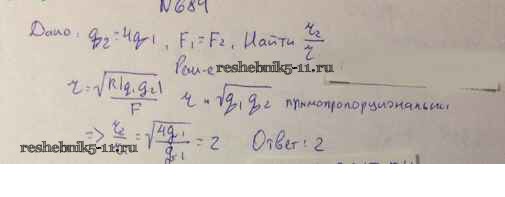 N684
Дано: q₂=4q₁, F₁=F₂, Найти r₂/r
Реш-е
reshebnik5-11.ru
r=√(k|q₁q₂|/F) r ~ √(q₁q₂) прямопропорциональны
=> r₂/r₁=√(4q₁/q₁)=2 Ответ: 2
reshebnik5-11.ru